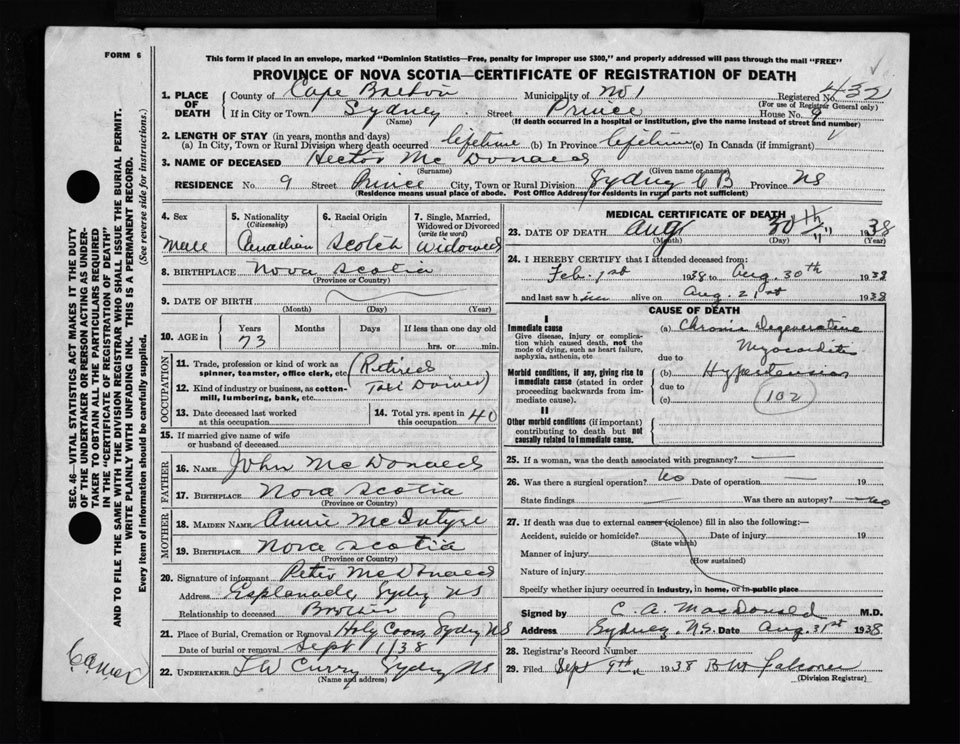 FORM 6
This form if enclosed in an envelope, marked "Dominion Statistics—Free, penalty for improper use $300," and properly addressed will pass through the mail "FREE"
PROVINCE OF NOVA SCOTIA—CERTIFICATE OF REGISTRATION OF DEATH
1. PLACE OF DEATH
County of Cape Breton Municipality of No 1 Registered No. 432
(For use of Registrar General only)
If in City or Town Sydney Street Prince House No. 9
(Name) (If death occurred in a hospital or institution, give the name instead of street and number)
2. LENGTH OF STAY (in years, months and days)
(a) In City, Town or Rural Division where death occurred lifetime (b) In Province lifetime (c) In Canada (if immigrant)
3. NAME OF DECEASED Hector McDonald
(Surname) (Given name or names)
RESIDENCE No. 9 Street Prince City, Town or Rural Division Sydney CB Province NS
(Residence means usual place of abode. Post Office Address for residents in rural parts not sufficient)
4. Sex
Male
5. Nationality
(Citizenship)
Canadian
6. Racial Origin
Scotch
7. Single, Married, Widowed or Divorced
(write the word)
Widowed
8. BIRTHPLACE Nova Scotia
(Province or Country)
9. DATE OF BIRTH
(Month) (Day) (Year)
10. AGE in
Years Months Days If less than one day old
73 hrs. or min.
OCCUPATION
11. Trade, profession or kind of work as spinner, teamster, office clerk, etc. (Retired
12. Kind of industry or business, as cotton-mill, lumbering, bank, etc. Taxi Driver)
13. Date deceased last worked at this occupation
14. Total yrs. spent in this occupation 40
15. If married give name of wife or husband of deceased
FATHER
16. NAME John McDonald
17. BIRTHPLACE Nova Scotia
(Province or Country)
MOTHER
18. MAIDEN NAME Annie McIntyre
19. BIRTHPLACE Nova Scotia
(Province or Country)
20. Signature of informant Peter McDonald
Address Esplanade, Sydney NS
Relationship to deceased Brother
21. Place of Burial, Cremation or Removal Holy Cross Sydney NS
Date of burial or removal Sept 1/38
22. UNDERTAKER T W Curry Sydney NS
(Name and address)
MEDICAL CERTIFICATE OF DEATH
23. DATE OF DEATH Aug 30th 1938
(Month) (Day) (Year)
24. I HEREBY CERTIFY that I attended deceased from:
Feb. 1st 1938 to Aug. 30th 1938
and last saw him alive on Aug. 21st 1938
CAUSE OF DEATH
I
Immediate cause
Give disease, injury or complication which caused death, not the mode of dying, such as heart failure, asphyxia, asthenia, etc.
(a) Chronic Degenerative Myocarditis
due to
Morbid conditions, if any, giving rise to immediate cause (stated in order proceeding backwards from immediate cause).
(b) Hypertension
due to
(c) 102
II
Other morbid conditions (if important) contributing to death but not causally related to immediate cause.
25. If a woman, was the death associated with pregnancy? —
26. Was there a surgical operation? No Date of operation — 19
State findings Was there an autopsy? No
27. If death was due to external causes (violence) fill in also the following:—
Accident, suicide or homicide? Date of injury 19
(State which)
Manner of injury
(How sustained)
Nature of injury
Specify whether injury occurred in industry, in home, or in public place
Signed by C. A. MacDonald M.D.
Address Sydney, N.S. Date Aug. 31st 1938
28. Registrar's Record Number
29. Filed Sept 9th 1938 B W Falconer
(Division Registrar)
SEC. 46—VITAL STATISTICS ACT MAKES IT THE DUTY OF THE UNDERTAKER OR PERSON ACTING AS UNDERTAKER TO OBTAIN ALL THE PARTICULARS REQUIRED IN THE "CERTIFICATE OF REGISTRATION OF DEATH" AND TO FILE THE SAME WITH THE DIVISION REGISTRAR WHO SHALL ISSUE THE BURIAL PERMIT.
WRITE PLAINLY WITH UNFADING INK. THIS IS A PERMANENT RECORD.
Every item of information should be carefully supplied. (See reverse side for instructions.)